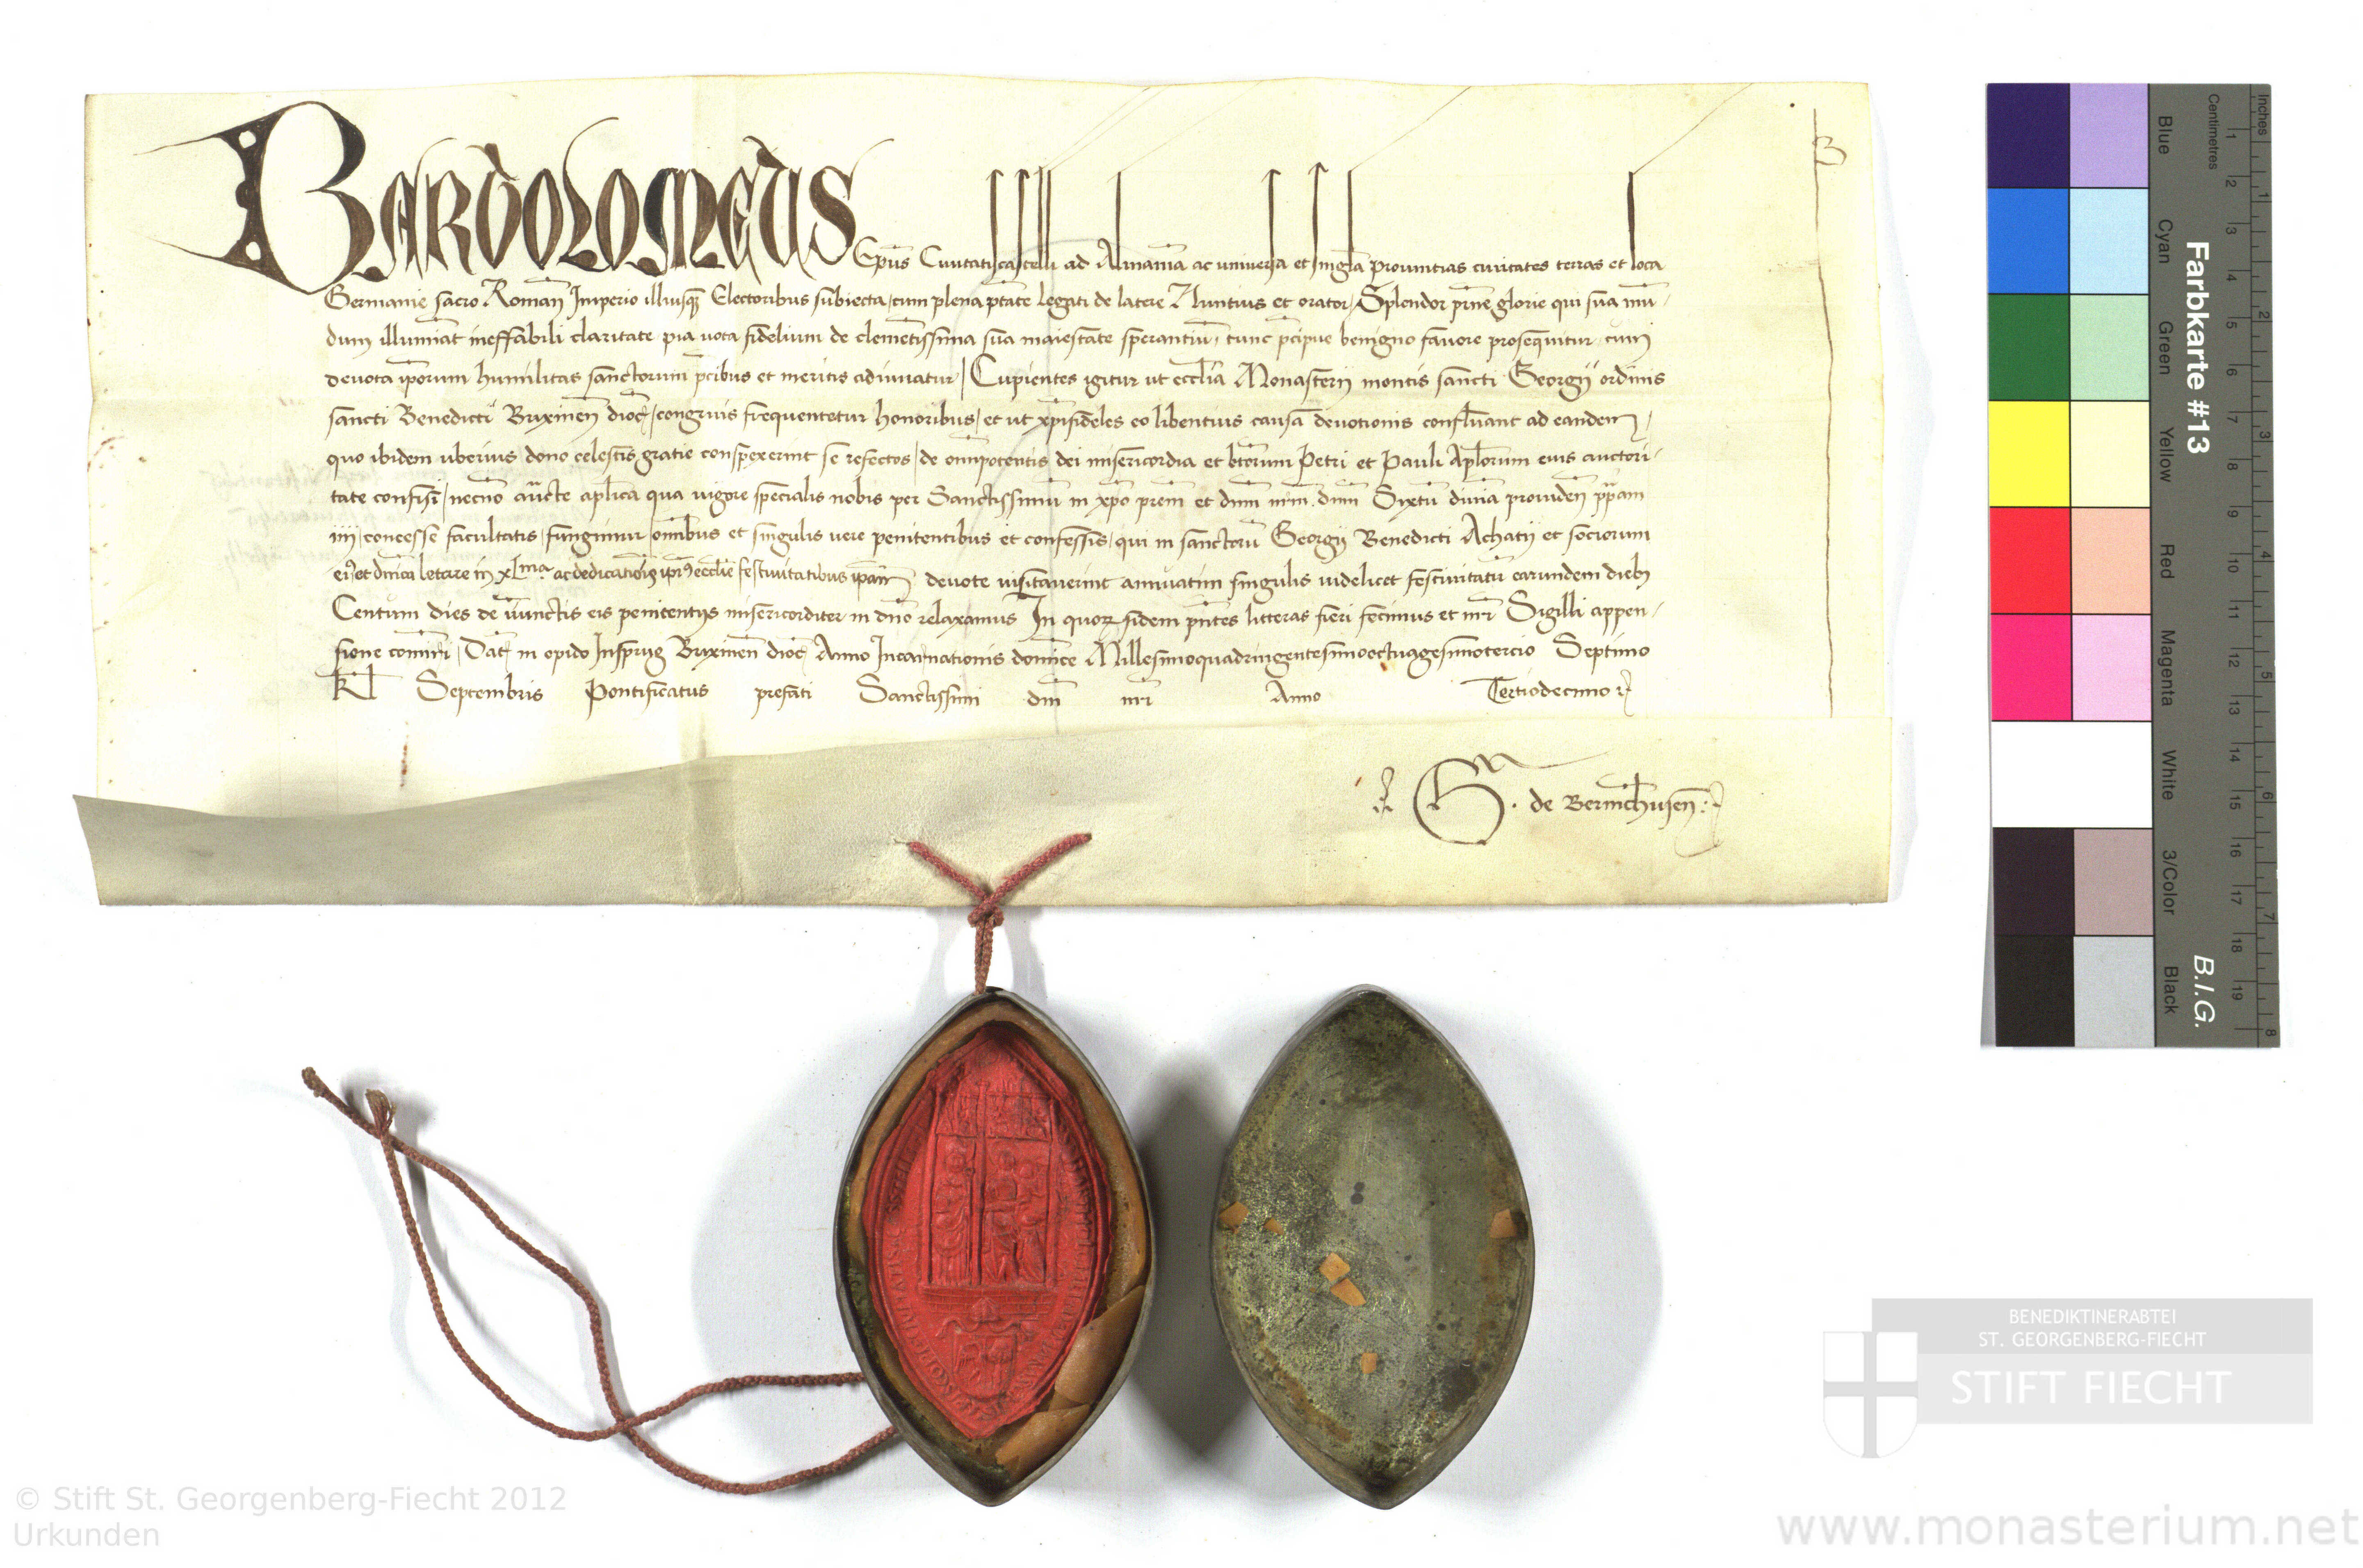 BARTOLOMEUS Ep̄us Ciuitatis castelli ad Almaniā ac universa et singl̄a prouintias ciuitates terras et loca
Germanie sacro Roman̄ Imperio illiusqꝫ Electoribus subiecta, cum plena p̄tate legati de latere Nuntius et orator, Splendor pr̄ne glorie qui sua mū-
dum illumīat ineffabili claritate pia uota fidelium de clemētissima sua maiestate sperantiū, tunc p̄cipue benigno fauore prosequitur, cum
deuota ip̄orum humilitas sanctorum p̄cibus et meritis adiuuatur / Cupientes igitur ut eccl̄ia Monasterij montis sancti Georgij ordinis
sancti Benedicti Brixinen̄ dioc̄, congruis frequentetur honoribus, et ut xp̄ifideles eo libentius causa deuotionis confluant ad eandem,
quo ibidem uberius dono celestis gratie conspexerint se refectos, de om̄ipotentis dei misericordia et b̄torum Petri et Pauli Apl̄orum eius auctori-
tate confisi, necnō auc̄te apl̄ica qua uigore specialis nobis per Sanctissimū in xp̄o prēm et dnm̄ nrm̄ dnm̄ Sixtū diuīa prouiden̄ pp̄am
iiij, concesse facultatis, fungimur om̄ibus et singulis uere penitentibus et confessis, qui in sanctorū Georgij Benedicti Achatij et sociorum
eiꝰ et dn̄ica letare in xl.ma ac dedicatiōis ip̄iꝰ eccl̄ie festiuitatibus ip̄am deuote uisitauerint annuatim singulis uidelicet festiuitatū earundem diebꝫ
Centum dies de iniunctis eis penitentijs misericorditer in dn̄o relaxamus In quoꝝ fidem pn̄tes litteras fieri fecimus et nr̄i Sigilli appen-
sione com̄iri, Dat̄ in opido Insprug Brixinen̄ dioc̄ Anno Incarnationis domīce Millesimoquadringentesimooctuagesimotercio Septimo
Kl̄ Septembris Pontificatus prefati Sanctissimi dnī nr̄i Anno Tertiodecimo
G. de Bernichusen
Farbkarte #13
B.I.G.
Inches
Centimetres
1 2 3 4 5 6 7 8
1 2 3 4 5 6 7 8 9 10 11 12 13 14 15 16 17 18 19
Blue
Cyan
Green
Yellow
Red
Magenta
White
3/Color
Black
BENEDIKTINERABTEI
ST. GEORGENBERG-FIECHT
STIFT FIECHT
© Stift St. Georgenberg-Fiecht 2012
Urkunden
www.monasterium.net